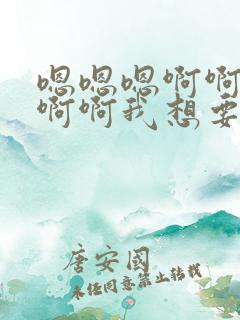 嗯嗯嗯啊啊
啊啊我想要
唐安國
未任同意禁止转载